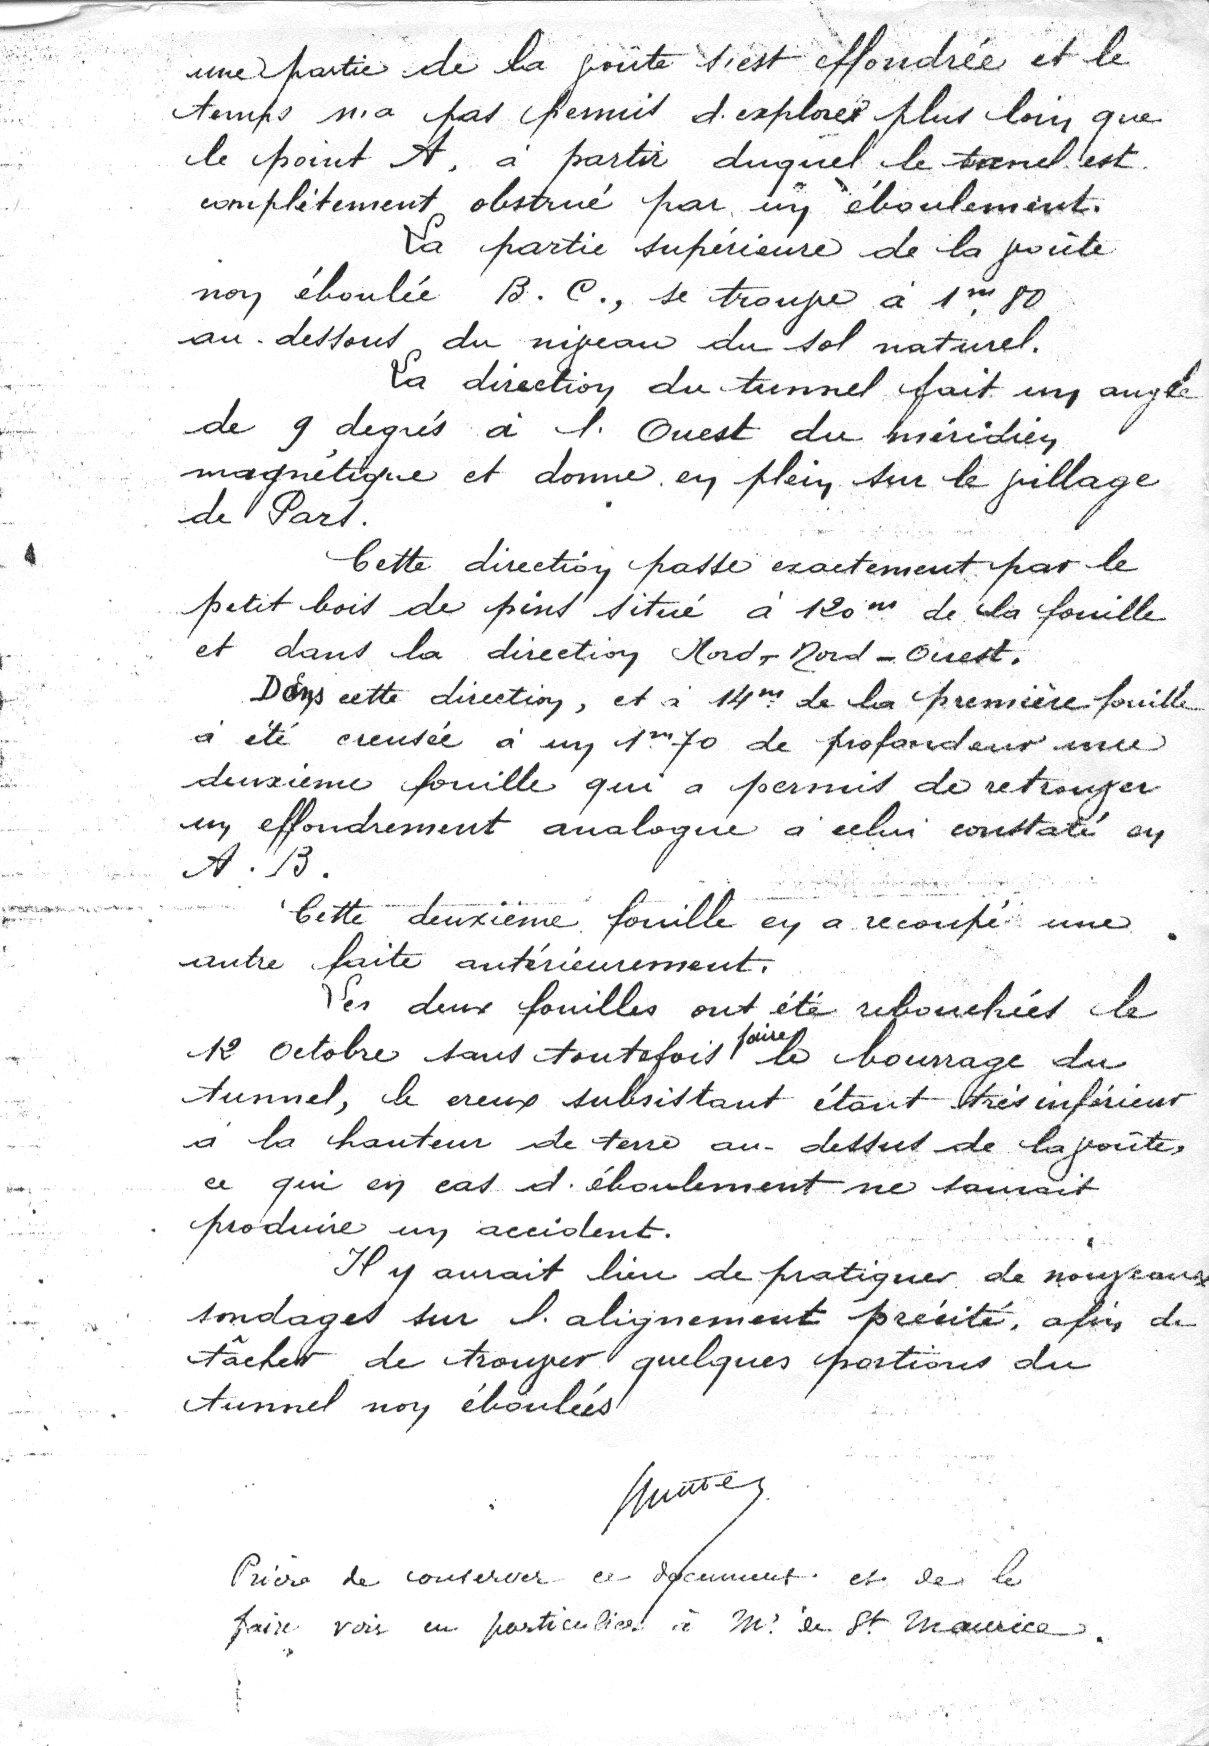 une partie de la voûte s'est effondrée et le
temps n'a pas permis d'explorer plus loin que
le point A, à partir duquel le tunel est
complètement obstrué par un éboulement.
La partie supérieure de la voûte
non éboulée B. C., se trouve à 1m,80
au-dessous du niveau du sol naturel.
La direction du tunnel fait un angle
de 9 degrés à l'Ouest du méridien
magnétique et donne en plein sur le village
de Pars.
Cette direction passe exactement par le
petit bois de pins situé à 120m de la fouille
et dans la direction Nord-Nord-Ouest.
Dans cette direction, et à 14m. de la première fouille
a été creusée à un 1m70 de profondeur une
deuxième fouille qui a permis de retrouver
un effondrement analogue à celui constaté en
A. B.
Cette deuxième fouille en a recoupé une
autre faite antérieurement.
Les deux fouilles ont été rebouchées le
12 Octobre sans toutefois faire le bourrage du
tunnel, le creux subsistant étant très inférieur
à la hauteur de terre au-dessus de la voûte,
ce qui en cas d'éboulement ne saurait
produire un accident.
Il y aurait lieu de pratiquer de nouveaux
sondages sur l'alignement précité, afin de
tâcher de trouver quelques portions du
tunnel non éboulées
Prière de conserver ce document et de le
faire voir en particulier à Mr de St Maurice.